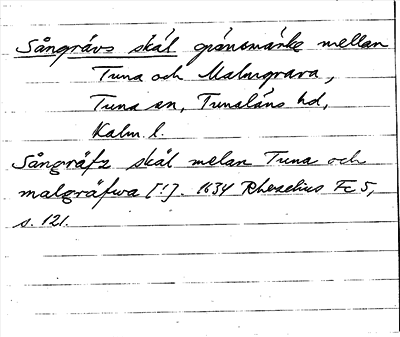 Sångrävs skäl gränsmärke mellan
Tuna och Malmgrava,
Tuna sn, Tunaläns hd,
Kalm. l.
Sångräfz skäl melan Tuna och
malgräfwa [!]. 1634 Rhezelius Fc 5,
s. 121.